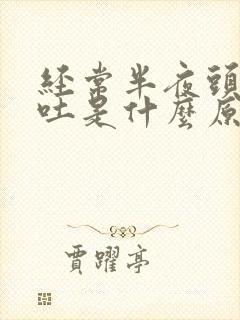 經常半夜頭
吐是什麼原
賈躍亭